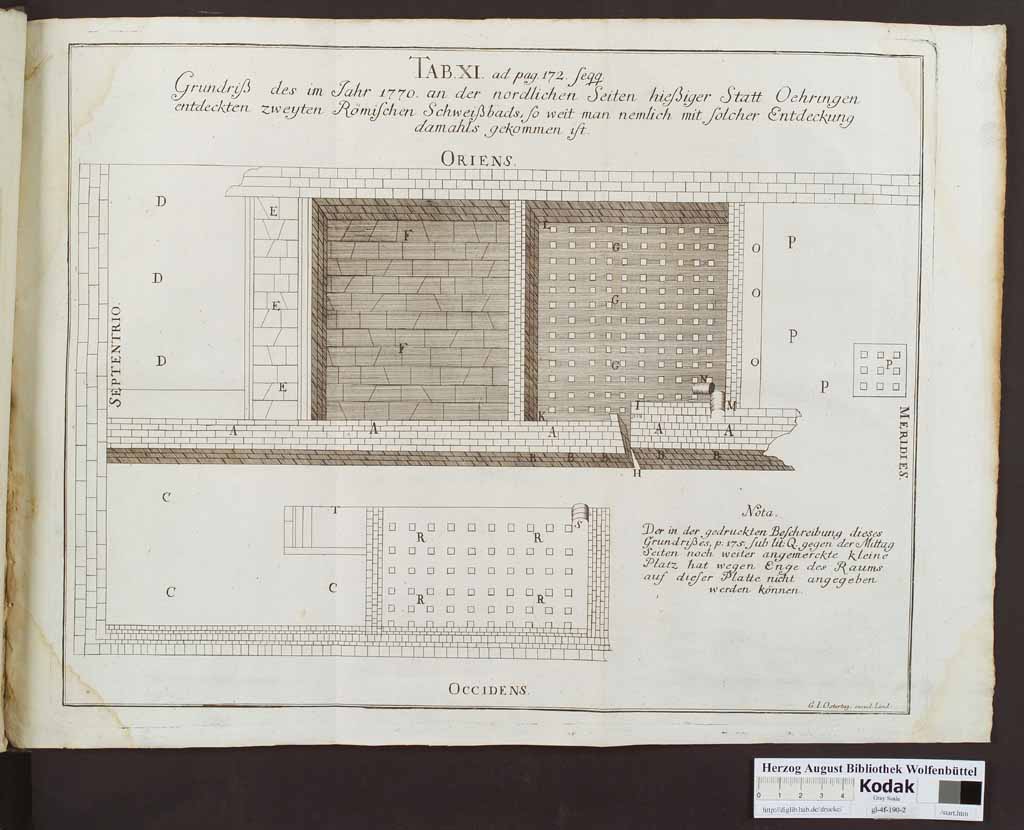 TAB. XI. ad pag. 172. seqq
Grundriß des im Jahr 1770. an der nordlichen Seiten hießiger Statt Oehringen
entdeckten zweyten Römischen Schweißbads, so weit man nemlich mit solcher Entdeckung
damahls gekommen ist.
ORIENS.
D
D
D
SEPTENTRIO.
E
E
E
F
F
L
G
G
G
K
I
N
M
O
O
O
P
P
P
P
MERIDIES.
A A A A A
B B B B B
H
C
C C
T
S
R R
R R
Nota.
Der in der gedruckten Beschreibung dieses
Grundrißes, p. 175. sub lit. Q. gegen der Mittag
Seiten noch weiter angemerckte kleine
Platz hat wegen Enge des Raums
auf dieser Platte nicht angegeben
werden können.
OCCIDENS.
G. I. Ostertag
Herzog August Bibliothek Wolfenbüttel
0 1 2 3 4
Kodak
Gray Scale
http://diglib.hab.de/drucke/
gl-4f-190-2
/start.htm